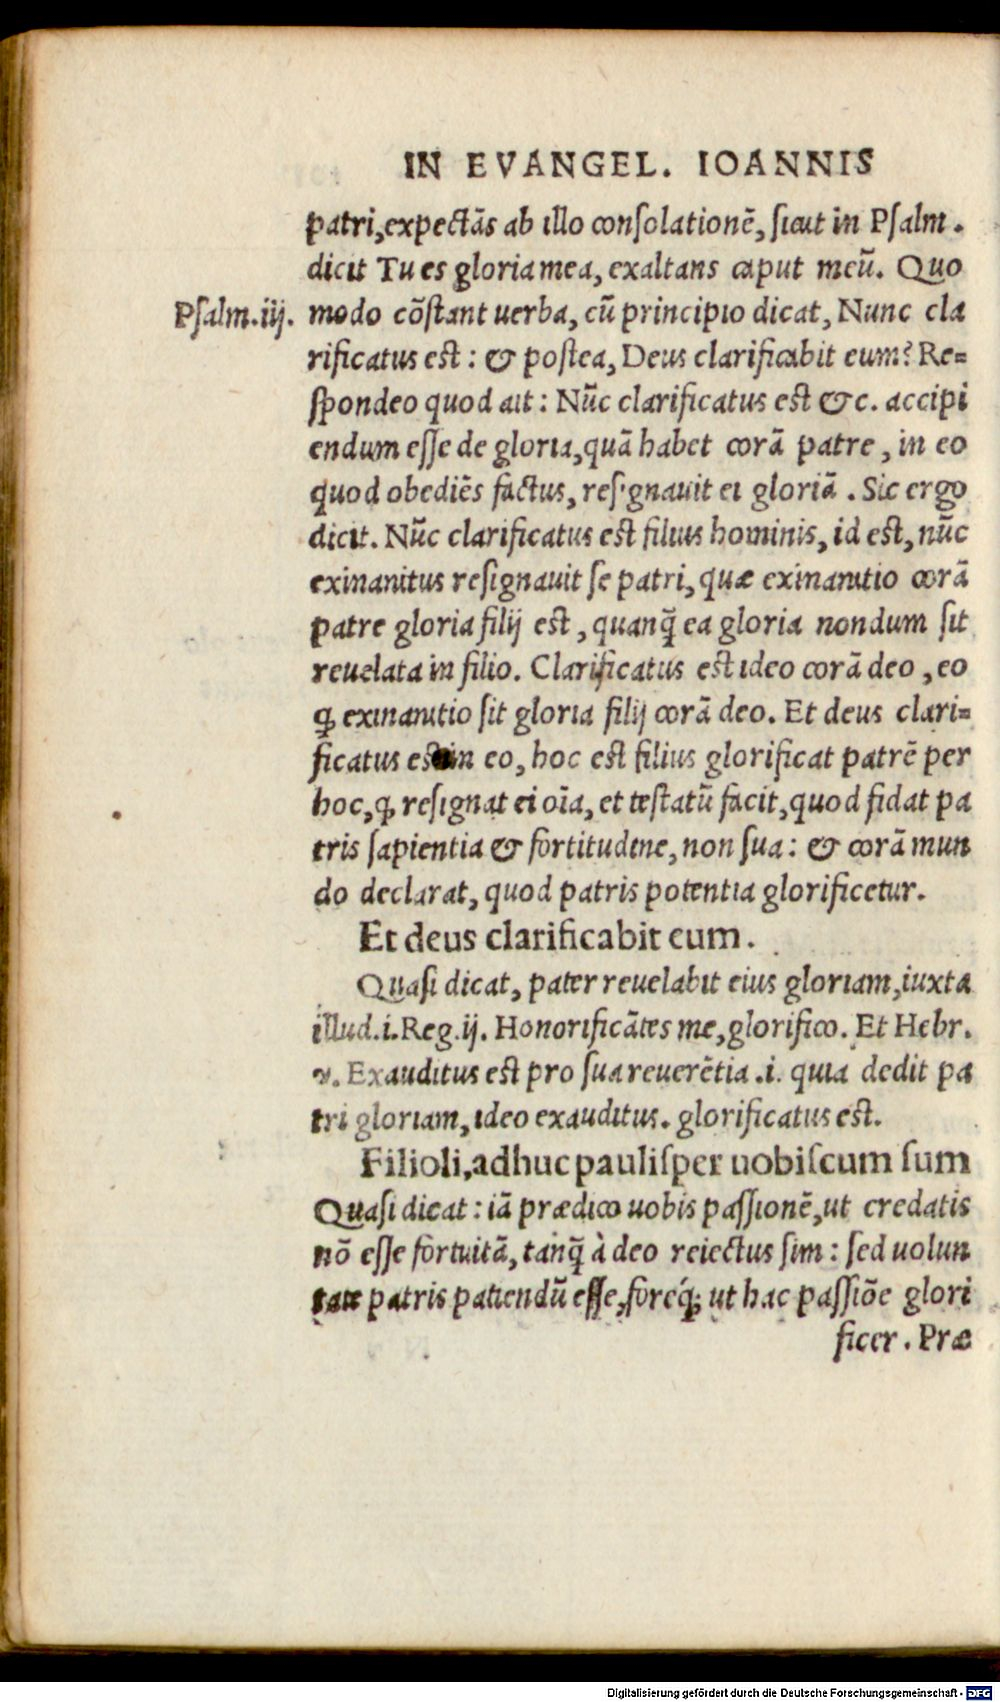 IN EVANGEL. IOANNIS
patri, expectãs ab illo conſolationẽ, ſicut in Pſalm.
dicit Tu es gloria mea, exaltans caput meũ. Quo
Pſalm.iij. modo cõſtant uerba, cũ principio dicat, Nunc cla
rificatus est: & poſtea, Deus clarificabit eum? Re=
ſpondeo quod ait: Nũc clarificatus eſt &c. accipi
endum eſſe de gloria, quã habet corã patre, in eo
quod obediẽs factus, reſignauit ei gloriã. Sic ergo
dicit. Nũc clarificatus eſt filius hominis, id eſt, nũc
exinanitus reſignauit ſe patri, quæ exinanitio corã
patre gloria filij eſt, quanq̃ ea gloria nondum ſit
reuelata in filio. Clarificatus eſt ideo corã deo, eo
ꝙ exinanitio ſit gloria filij corã deo. Et deus clari=
ficatus eſt in eo, hoc eſt filius glorificat patrẽ per
hoc, ꝙ reſignat ei oĩa, et teſtatũ facit, quod fidat pa
tris ſapientia & fortitudine, non ſua: & corã mun
do declarat, quod patris potentia glorificetur.
Et deus clarificabit eum.
Quaſi dicat, pater reuelabit eius gloriam, iuxta
illud.i.Reg.ij. Honorificãtes me, glorifico. Et Hebr.
v. Exauditus eſt pro ſua reuerẽtia .i. quia dedit pa
tri gloriam, ideo exauditus. glorificatus eſt.
Filioli, adhuc pauliſper uobiſcum ſum
Quaſi dicat: iã prædico uobis paſſionẽ, ut credatis
nõ eſſe fortuitã, tanq̃ à deo reiectus ſim: ſed uolun
tate patris patiendũ eſſe, foréq; ut hac paſſiõe glori
ficer. Præ
Digitalisierung gefördert durch die Deutsche Forschungsgemeinschaft - DFG